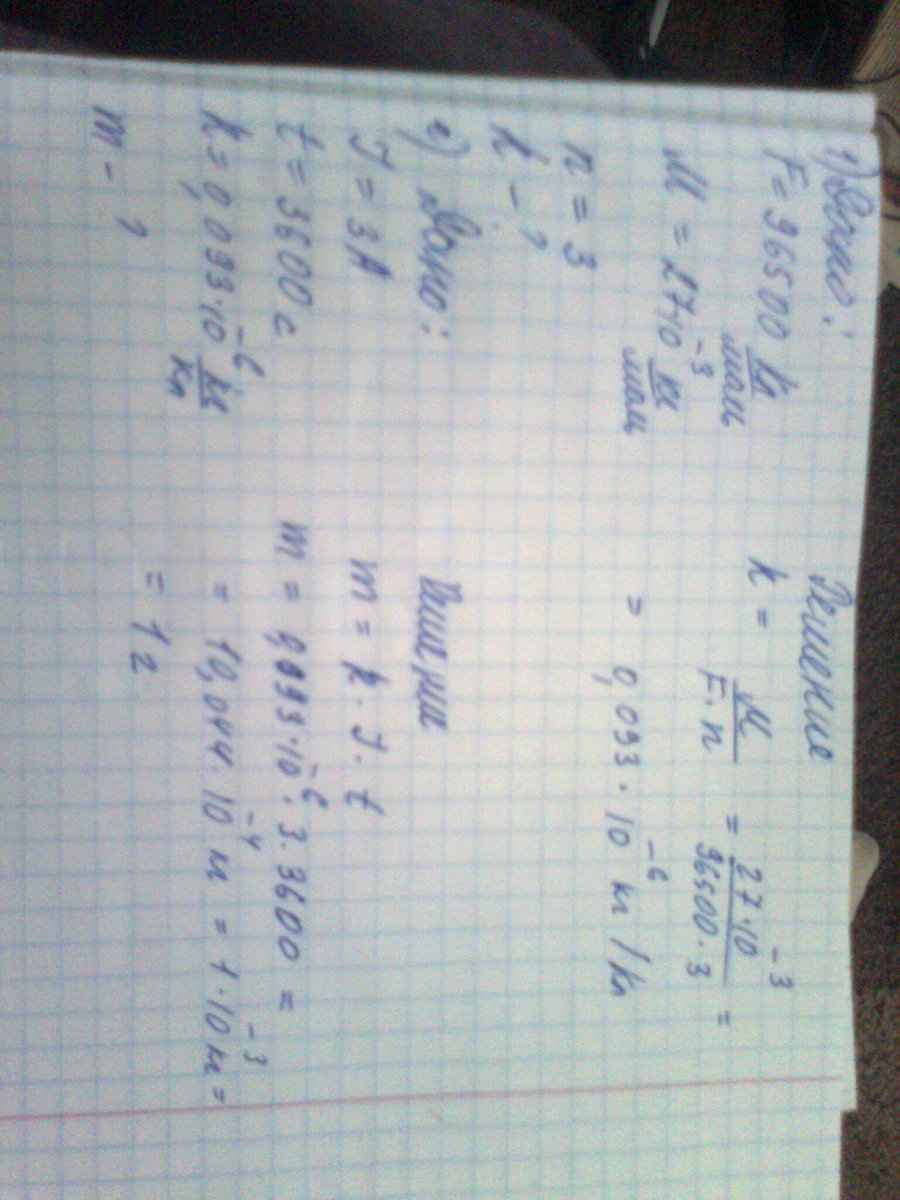 1) Дано:
F = 96500 Кл/моль
M = 27·10⁻³ кг/моль
n = 3
k - ?
Решение
k = M/F·n = 27·10⁻³/96500·3 =
= 0,093·10⁻⁶ кг/Кл
2) Дано:
J = 3А
t = 3600 с
k = 0,093·10⁻⁶ кг/Кл
m - ?
Решение
m = k·J·t
m = 0,093·10⁻⁶·3·3600 =
= 10,044·10⁻⁴ кг = 1·10⁻³ кг =
= 1 г